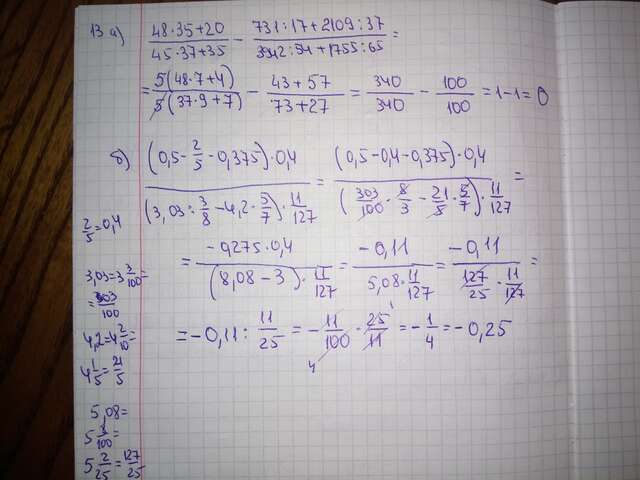 13 а) (48·35+20)/(45·37+35) − (731:17+2109:37)/(3942:54+1755:65) =
= 5(48·7+4)/5(37·9+7) − (43+57)/(73+27) = 340/340 − 100/100 = 1−1= 0
б) ((0,5−2/5−0,375)·0,4)/((3,03:3/8−4,2·5/7)·11/127) = ((0,5−0,4−0,375)·0,4)/((303/100·8/3−21/5·5/7)·11/127) =
2/5=0,4
= (−0,275·0,4)/((8,08−3)·11/127) = (−0,11)/(5,08·11/127) = (−0,11)/(127/25·11/127) =
3,03=3 3/100=
=303/100
= −0,11 : 11/25 = −11/100 · 25/11 = −1/4 = −0,25
1
4
4,2=4 2/10=
4 1/5=21/5
5,08=
5 8/100=
5 2/25=127/25